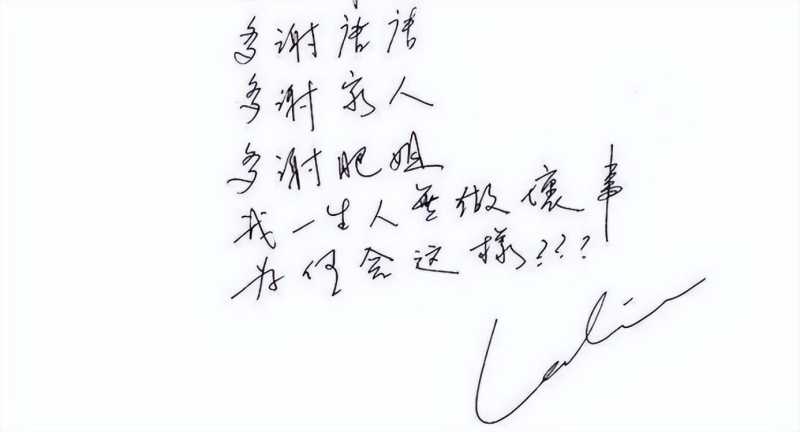 多謝唐唐
多謝家人
多謝肥姐
我一生人無做壞事
为何会这樣???
Leslie